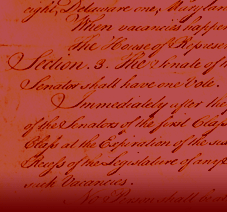 eight, Delaware one, Maryland
When vacancies happen
the House of Represen
Section. 3. The Senate of th
Senator shall have one Vote.
Immediately after the
of the Senators of the first Class
Class at the Expiration of the
Recess of the Legislature of any
such Vacancies.
No Person shall be a